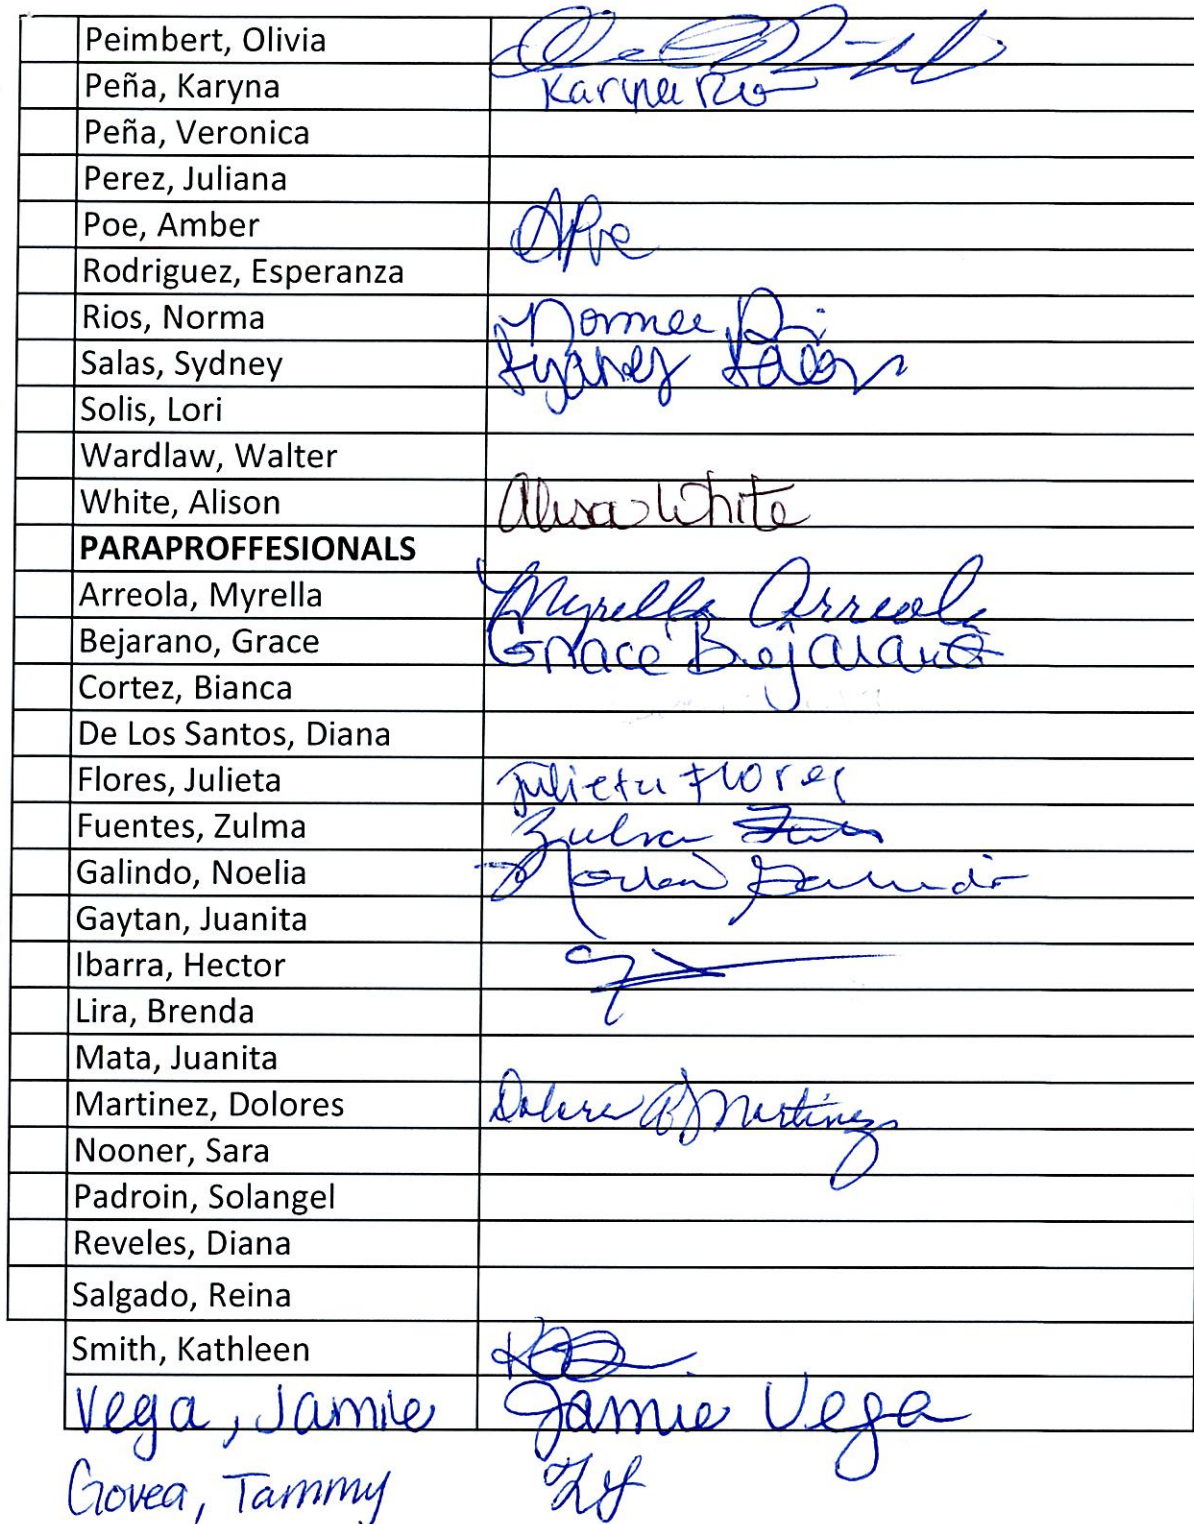 Peimbert, Olivia
Peña, Karyna Karyna
Peña, Veronica
Perez, Juliana
Poe, Amber APoe
Rodriguez, Esperanza
Rios, Norma Norma
Salas, Sydney Sydney Salas
Solis, Lori
Wardlaw, Walter
White, Alison Alison White
PARAPROFFESIONALS
Arreola, Myrella Myrella Arreola
Bejarano, Grace Grace Bejarano
Cortez, Bianca
De Los Santos, Diana
Flores, Julieta Julieta Flores
Fuentes, Zulma Zulma
Galindo, Noelia Noelia Galindo
Gaytan, Juanita
Ibarra, Hector
Lira, Brenda
Mata, Juanita
Martinez, Dolores Dolores Martinez
Nooner, Sara
Padroin, Solangel
Reveles, Diana
Salgado, Reina
Smith, Kathleen
Vega, Jamie Jamie Vega
Govea, Tammy